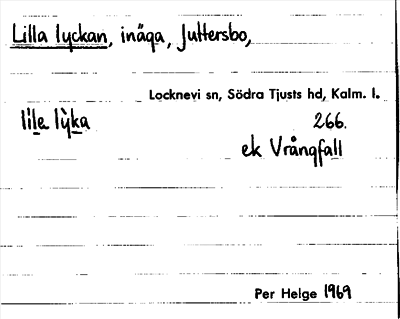 Lilla lyckan, inäga, Juttersbo,
Locknevi sn, Södra Tjusts hd, Kalm. l.
lile lỳka 266.
ek Vrångfall
Per Helge 1969